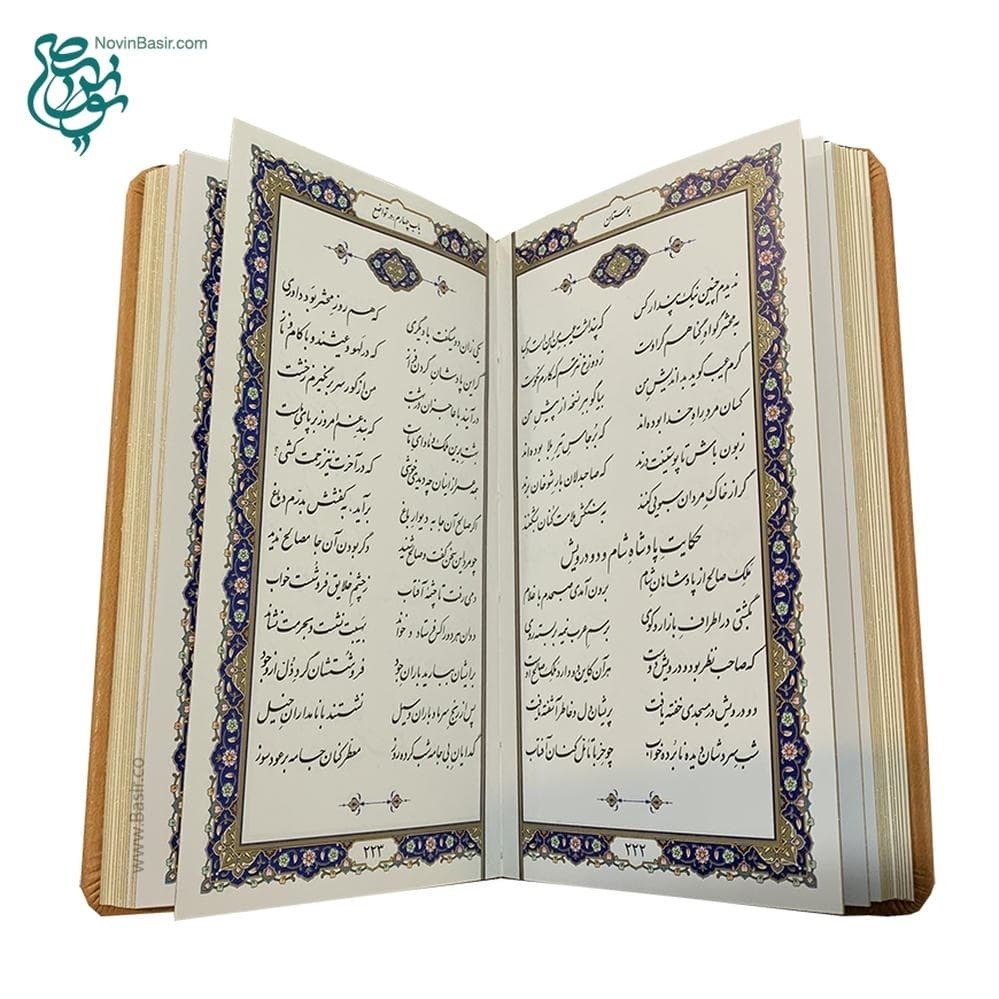 NovinBasir.com
نوین بصیر
بوستان
ندیدم چنین نیک پندار کس که پنداشت عیب من این است و بس
به محشر گواه گناهم گر اوست ز دوزخ نترسم که کارم نکوست
گرم عیب گوید بداندیش من بیا گو ببر نسخه از پیش من
کسان مرد راه خدا بوده‌اند که برجاس تیر بلا بوده‌اند
زبون باش تا پوستینت درند که صاحبدلان بار شوخان برند
گر از خاک مردان سبویی کنند به سنگش ملامت کنان بشکنند
حکایت پادشاه شام و دو درویش
ملک صالح از پادشاهان شام برون آمدی صبحدم با غلام
بگشتی در اطراف بازار و کوی به رسم عرب نیمه بربسته روی
که صاحب نظر بود و درویش دوست هر آن کاین دو دارد ملک صالح اوست
دو درویش در مسجدی خفته یافت پریشان دل و خاطر آشفته یافت
شب سردشان دیده نابرده خواب چو حربا تأمل کنان آفتاب
۲۲۲
باب چهارم در تواضع
یکی زان دو میگفت با دیگری که هم روز محشر بود داوری
گر این پادشاهان گردن فراز که در لهو و عیشند و با کام و ناز
درآیند با عاجزان در بهشت من از گور سر بر نگیرم ز خشت
بهشت برین ملک و مأوای ماست که بند غم امروز بر پای ماست
همه عمر از اینان چه دیدی خوشی که در آخرت نیز زحمت کشی؟
اگر صالح آن جا به دیوار باغ برآید، به کفشش بدرم دماغ
چو مرد این سخن گفت و صالح شنید دگر بودن آن جا مصالح ندید
دمی رفت تا چشمهٔ آفتاب ز چشم خلایق فرو شست خواب
دوان هر دو را کس فرستاد و خواند به هیبت نشست و به حرمت نشاند
بر ایشان ببارید باران جود فرو شستشان گرد ذل از وجود
پس از رنج سرما و باران و سیل نشستند با نامداران خیل
گدایان بی جامه شب کرده روز معطر کنان جامه بر عود سوز
۲۲۳
www.Basir.co